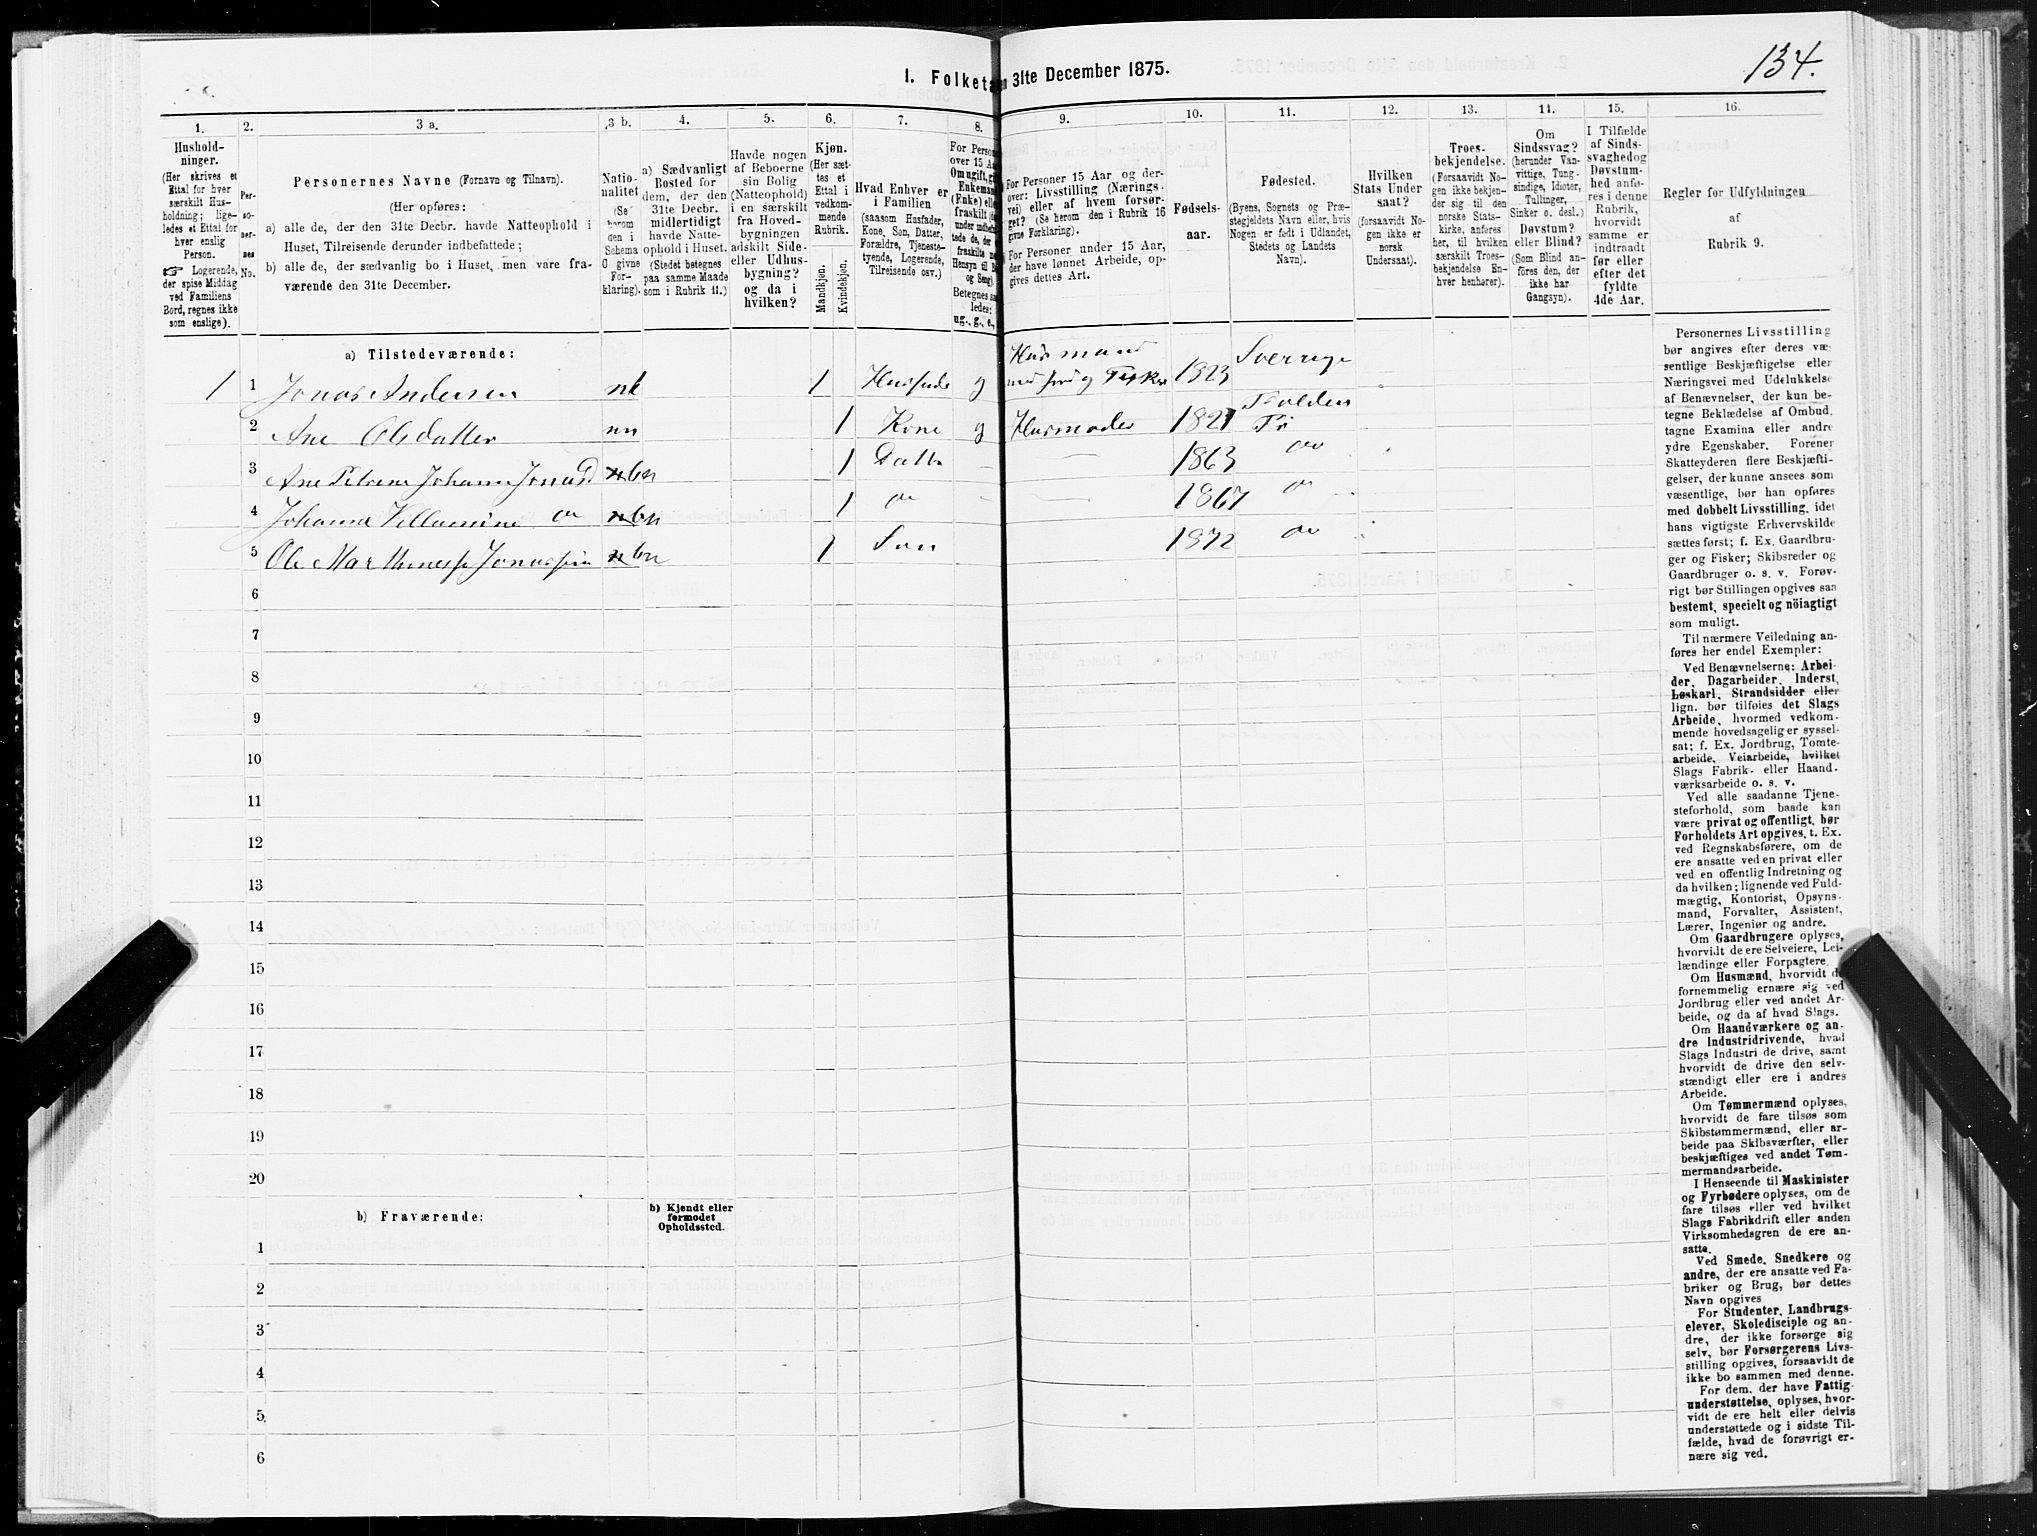 134.
I. Folketa en 31te December 1875.
1.
Hushold-
ninger.
(Her skrives et
Ettal for hver
særskilt Hus-
holdning; lige-
ledes et Ettal for
hver enslig
Person.
☞ Logerende,
der spise Middag
ved Familiens
Bord, regnes ikke
som enslige).
2.
Per-
so-
ner-
nes
No.
3 a.
Personernes Navne (Fornavn og Tilnavn).
(Her opføres:
a) alle de, der den 31te Decbr. havde Natteophold i
Huset, Tilreisende derunder indbefattede;
b) alle de, der sædvanlig bo i Huset, men vare fra-
værende den 31te December.
3 b.
Natio-
nalitet
(Se
herom
den i
Schema
6 givne
For-
klaring).
4.
a) Sædvanligt
Bosted for
dem, der den
31te Decbr.
midlertidigt
havde Natte-
ophold i Huset.
(Stedet betegnes
paa samme Maade
som i Rubrik 11.)
5.
Havde nogen
af Beboerne
sin Bolig
(Natteophold)
i en særskilt
fra Hoved-
bygningen
adskilt Side-
eller Udhus-
bygning?
og da i
hvilken?
6.
Kjøn.
(Her sæt-
tes et
Ettal i
vedkom-
mende
Rubrik.
Mandkjøn.
Kvindekjøn.
7.
Hvad Enhver er
i Familien
(saasom Husfader,
Kone, Søn, Datter,
Forældre, Tjeneste-
tyende, Logerende,
Tilreisende osv.)
8.
For Person
over 15 Aa
Om ugift, gi
Enkemand
(Enke) elle
fraskilt
under indbefat-
tede de, der
fraskilte
Hensyn til B
og Seng).
Betegnes saa
ledes:
ug., g., e.,
9.
For Personer 15 Aar og der-
over: Livsstilling (Nærings-
vei) eller af hvem forsør-
get? (Se herom den i Rubrik 16
givne Forklaring).
For Personer under 15 Aar,
der have lønnet Arbeide, op-
gives dettes Art.
10.
Fødsels-
aar.
11.
Fødested.
(Byens, Sognets og Præ-
stegjeldets Navn eller, hvis
Nogen er født i Udlandet,
Stedets og Landets
Navn).
12.
Hvilken
Stats Under
saat?
(forsaavidt No-
gen ikke er
norsk
Undersaat).
13.
Troes-
bekjendelse.
(Forsaavidt No-
gen ikke bekjen-
der sig til den
norske Stats-
kirke, anføres
her, til hvilken
særskilt Troes-
bekjendelse En-
hver henhører).
14.
Om
Sindssvag?
(herunder Van-
vittige, Tung-
sindige, Idioter,
Tullinger,
Sinker o. desl.)
Døvstum?
eller Blind?
(Som Blind an-
føres den, der
ikke har
Gangsyn).
15.
I Tilfælde
af Sinds-
svaghedog
Døvstum-
hed anfø-
res i denne
Rubrik,
hvorvidt
samme er
indtraadt
før eller
efter det
fyldte
4de Aar.
16.
Regler for Udfyldningen
af
Rubrik 9.
a) Tilstedeværende:
1 1 Jonas Andersen nk 1 Husfade g Husmand med jord og Fisker 1823 Sverrige
2 Ane Olsdatter nn 1 Kone g Husmoder 1821 Folden Fr
3 Ane Petrine Johanne Jonasd bn 1 Datte 1863 do
4 Johanna Villamine do bn 1 do 1867 do
5 Ole Marthinessen Jonassen bn 1 Søn 1872 do
6
7
8
9
10
11
12
13
14
15
16
17
18
19
20
b) Fraværende:
b) Kjendt eller
formodet
Opholdssted.
1
2
3
4
5
6
Personernes Livsstilling
bør angives efter deres væ-
sentlige Beskjæftigelse eller
Næringsvei med Udelukkelse
af Benævnelser, der kun be-
tegne Beklædelse af Ombud,
tagne Examina eller andre
ydre Egenskaber. Forener
Skatteyderen flere Beskjæfti-
gelser, der kunne ansees som
væsentlige, bør han opføres
med dobbelt Livsstilling, idet
hans vigtigste Erhvervskilde
sættes først; f. Ex. Gaardbru-
ger og Fisker; Skibsreder og
Gaardbruger o. s. v. Forøv-
rigt bør Stillingen opgives saa
bestemt, specielt og nöiagtigt
som muligt.
Til nærmere Veiledning an-
føres her endel Exempler:
Ved Benævnelserne: Arbei-
der, Dagarbeider, Inderst,
Løskarl, Strandsidder eller
lign. bør tilføies det Slags
Arbeide, hvormed vedkom-
mende hovedsagelig er syssel-
sat; f. Ex. Jordbrug, Tomte-
arbeide, Veiarbeide, hvilket
Slags Fabrik- eller Haand-
værksarbeide o. s. v.
Ved alle saadanne Tjene-
steforhold, som baade kan
være privat og offentligt, bør
Forholdets Art opgives, t. Ex.
ved Regnskabsførere, om de
ere ansatte ved en privat eller
ved en offentlig Indretning og
da hvilken; lignende ved Fuld-
mægtig, Kontorist, Opsyns-
mand, Forvalter, Assistent,
Lærer, Ingeniør og andre.
Om Gaardbrugere oplyses,
hvorvidt de ere Selveiere, Lei-
lændinge eller Forpagtere.
Om Husmænd, hvorvidt de
fornemmelig ernære sig ved
Jordbrug eller ved andet Ar-
beide, og da af hvad Slags.
Om Haandværkere og an-
dre Industridrivende, hvad
Slags Industri de drive, samt
hvorvidt de drive den selv-
stændigt eller ere i andres
Arbeide.
Om Tømmermænd oplyses,
hvorvidt de fare tilsøs som
Skibstømmermænd, eller ar-
beide paa Skibsværfter, eller
beskjæftiges ved andet Tøm-
mermandsarbeide.
I Henseende til Maskinister
og Fyrbødere oplyses, om de
fare tilsøs eller ved hvilket
Slags Fabrikdrift eller anden
Virksomhedsgren de ere an-
satte.
Ved Smede, Snedkere og
andre, der ere ansatte ved Fa-
briker og Brug, bør dettes
Navn opgives
For Studenter, Landbrugs-
elever, Skoledisciple og an-
dre, der ikke forsørge sig
selv, bør Forsørgerens Livs-
stilling opgives, forsaavidt de
ikke bo sammen med denne.
For dem, der have Fattig-
understøttelse, oplyses, hvor-
vidt de ere helt eller delvis
understøttede og i sidste Til-
fælde, hvad de forøvrigt er-
nære sig ved.